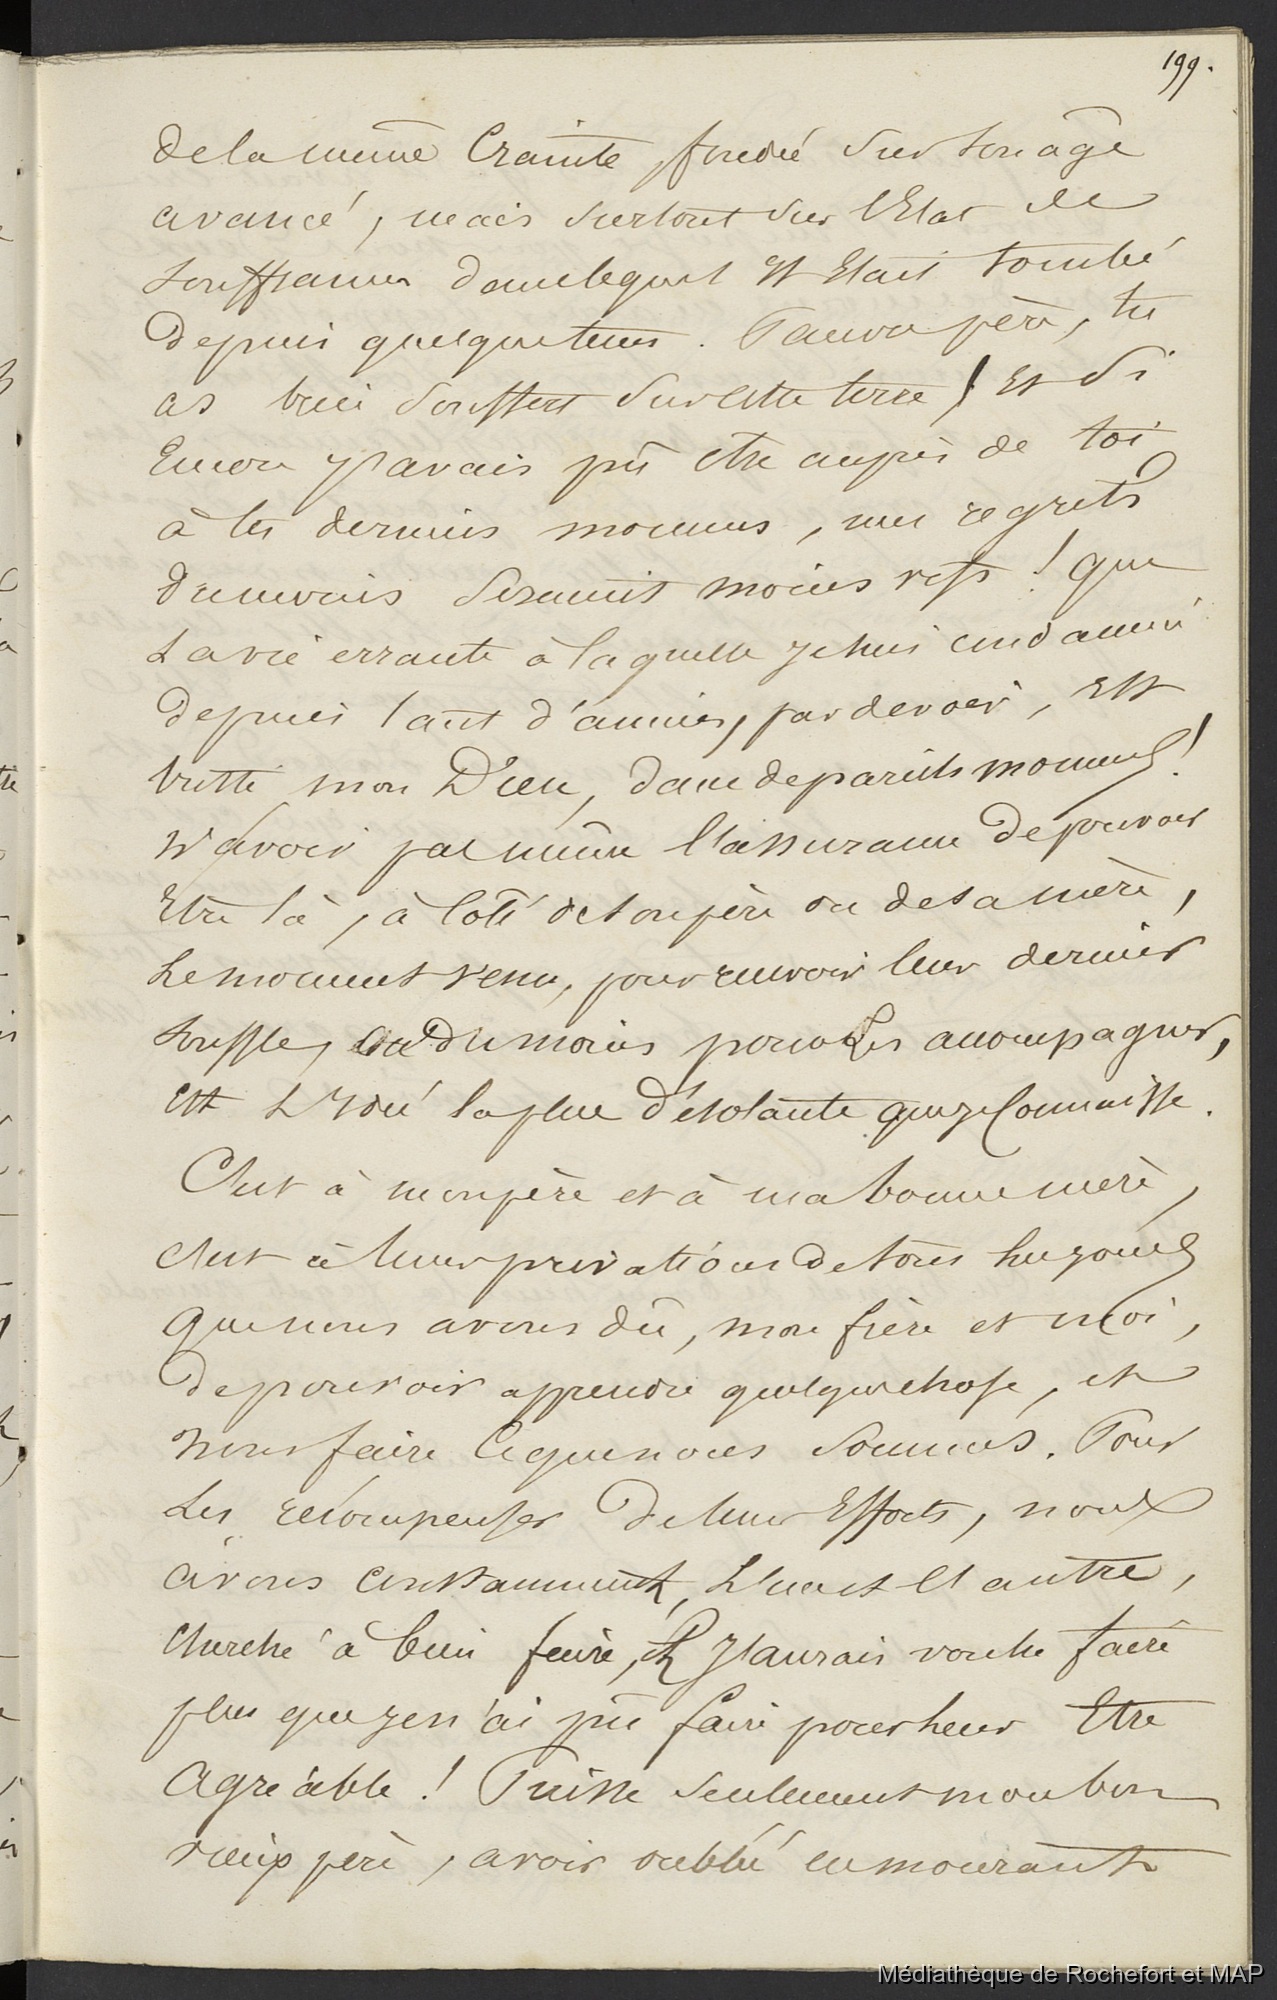 199.
de la même Crainte, fondée Sur son âge
avancé, mais Surtout Sur l'Etat de
souffrances dans lequel Il Etait tombé
depuis quelque tems. Pauvre père, tu
as bien Souffert Sur cette terre ! Et Si
Encore j'avais pû être auprès de toi
à tes derniers momens, mes regrets
d'au moins Seraient moins vifs ! que
La vie errante à laquelle je suis condamné
depuis tant d'années, par devoir, Est
triste mon Dieu, dans de pareils momens !
N'avoir pas même l'assurance de pouvoir
Etre là, à Coté de son père ou de sa mère,
Le moment venu, pour recevoir leur dernier
souffle, ou du moins pour Les accompagner,
Est L'Idée la plus désolante que je Connaisse.
C'est à mon père et à ma bonne mère,
C'est à leurs privations de tous les jours
que nous avons dû, mon frère et moi,
de pouvoir apprendre quelque chose, et
nous faire Ce que nous Sommes. Pour
Les récompenser de leurs Efforts, nous
avons Constamment, L'un et l'autre,
Cherché à bien faire, Et J'aurais voulu faire
plus que je n'ai pû faire pour leur Etre
Agréable ! Puisse Seulement mon bon
vieux père, avoir oublié en mourant
Médiathèque de Rochefort et MAP